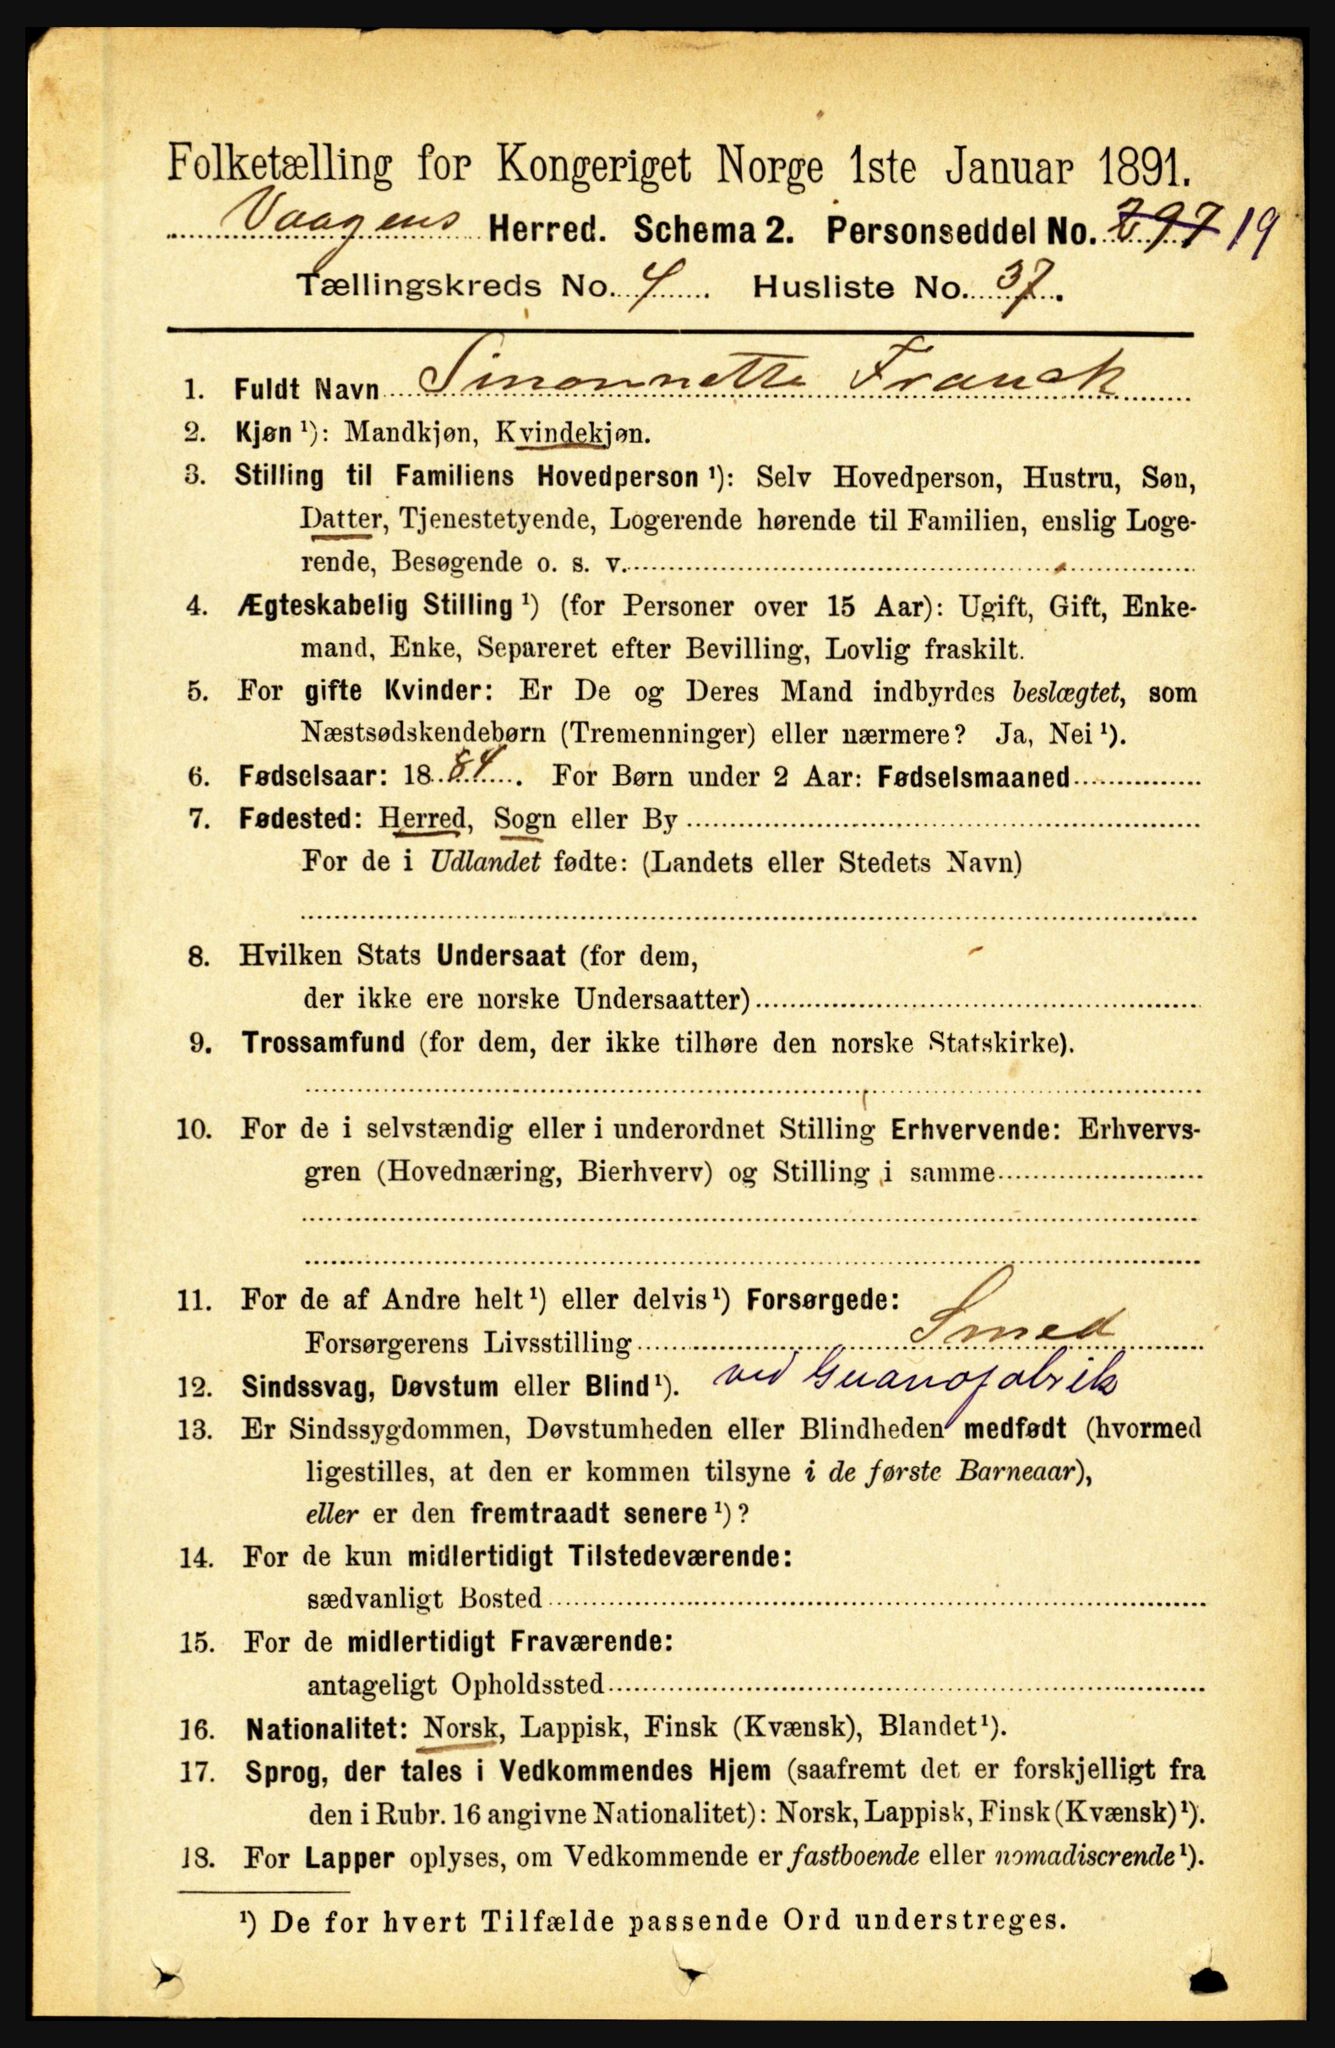 Folketælling for Kongeriget Norge 1ste Januar 1891.
Vaagens Herred. Schema 2. Personseddel No. 297 19
Tællingskreds No. 4. Husliste No. 37.
1. Fuldt Navn Simonnette Franck
2. Kjøn ¹): Mandkjøn, Kvindekjøn.
3. Stilling til Familiens Hovedperson ¹): Selv Hovedperson, Hustru, Søn,
Datter, Tjenestetyende, Logerende hørende til Familien, enslig Loge-
rende, Besøgende o. s. v.
4. Ægteskabelig Stilling ¹) (for Personer over 15 Aar): Ugift, Gift, Enke-
mand, Enke, Separeret efter Bevilling, Lovlig fraskilt.
5. For gifte Kvinder: Er De og Deres Mand indbyrdes beslægtet, som
Næstsødskendebørn (Tremenninger) eller nærmere? Ja, Nei ¹).
6. Fødselsaar: 1884. For Børn under 2 Aar: Fødselsmaaned
7. Fødested: Herred, Sogn eller By
For de i Udlandet fødte: (Landets eller Stedets Navn)
8. Hvilken Stats Undersaat (for dem,
der ikke ere norske Undersaatter)
9. Trossamfund (for dem, der ikke tilhøre den norske Statskirke).
10. For de i selvstændig eller i underordnet Stilling Erhvervende: Erhvervs-
gren (Hovednæring, Bierhverv) og Stilling i samme
11. For de af Andre helt ¹) eller delvis ¹) Forsørgede:
Forsørgerens Livsstilling Smed
ved Guanofabrik
12. Sindssvag, Døvstum eller Blind ¹).
13. Er Sindssygdommen, Døvstumheden eller Blindheden medfødt (hvormed
ligestilles, at den er kommen tilsyne i de første Barneaar),
eller er den fremtraadt senere ¹)?
14. For de kun midlertidigt Tilstedeværende:
sædvanligt Bosted
15. For de midlertidigt Fraværende:
antageligt Opholdssted
16. Nationalitet: Norsk, Lappisk, Finsk (Kvænsk), Blandet ¹).
17. Sprog, der tales i Vedkommendes Hjem (saafremt det er forskjelligt fra
den i Rubr. 16 angivne Nationalitet): Norsk, Lappisk, Finsk (Kvænsk) ¹).
18. For Lapper oplyses, om Vedkommende er fastboende eller nomadiserende ¹).
¹) De for hvert Tilfælde passende Ord understreges.